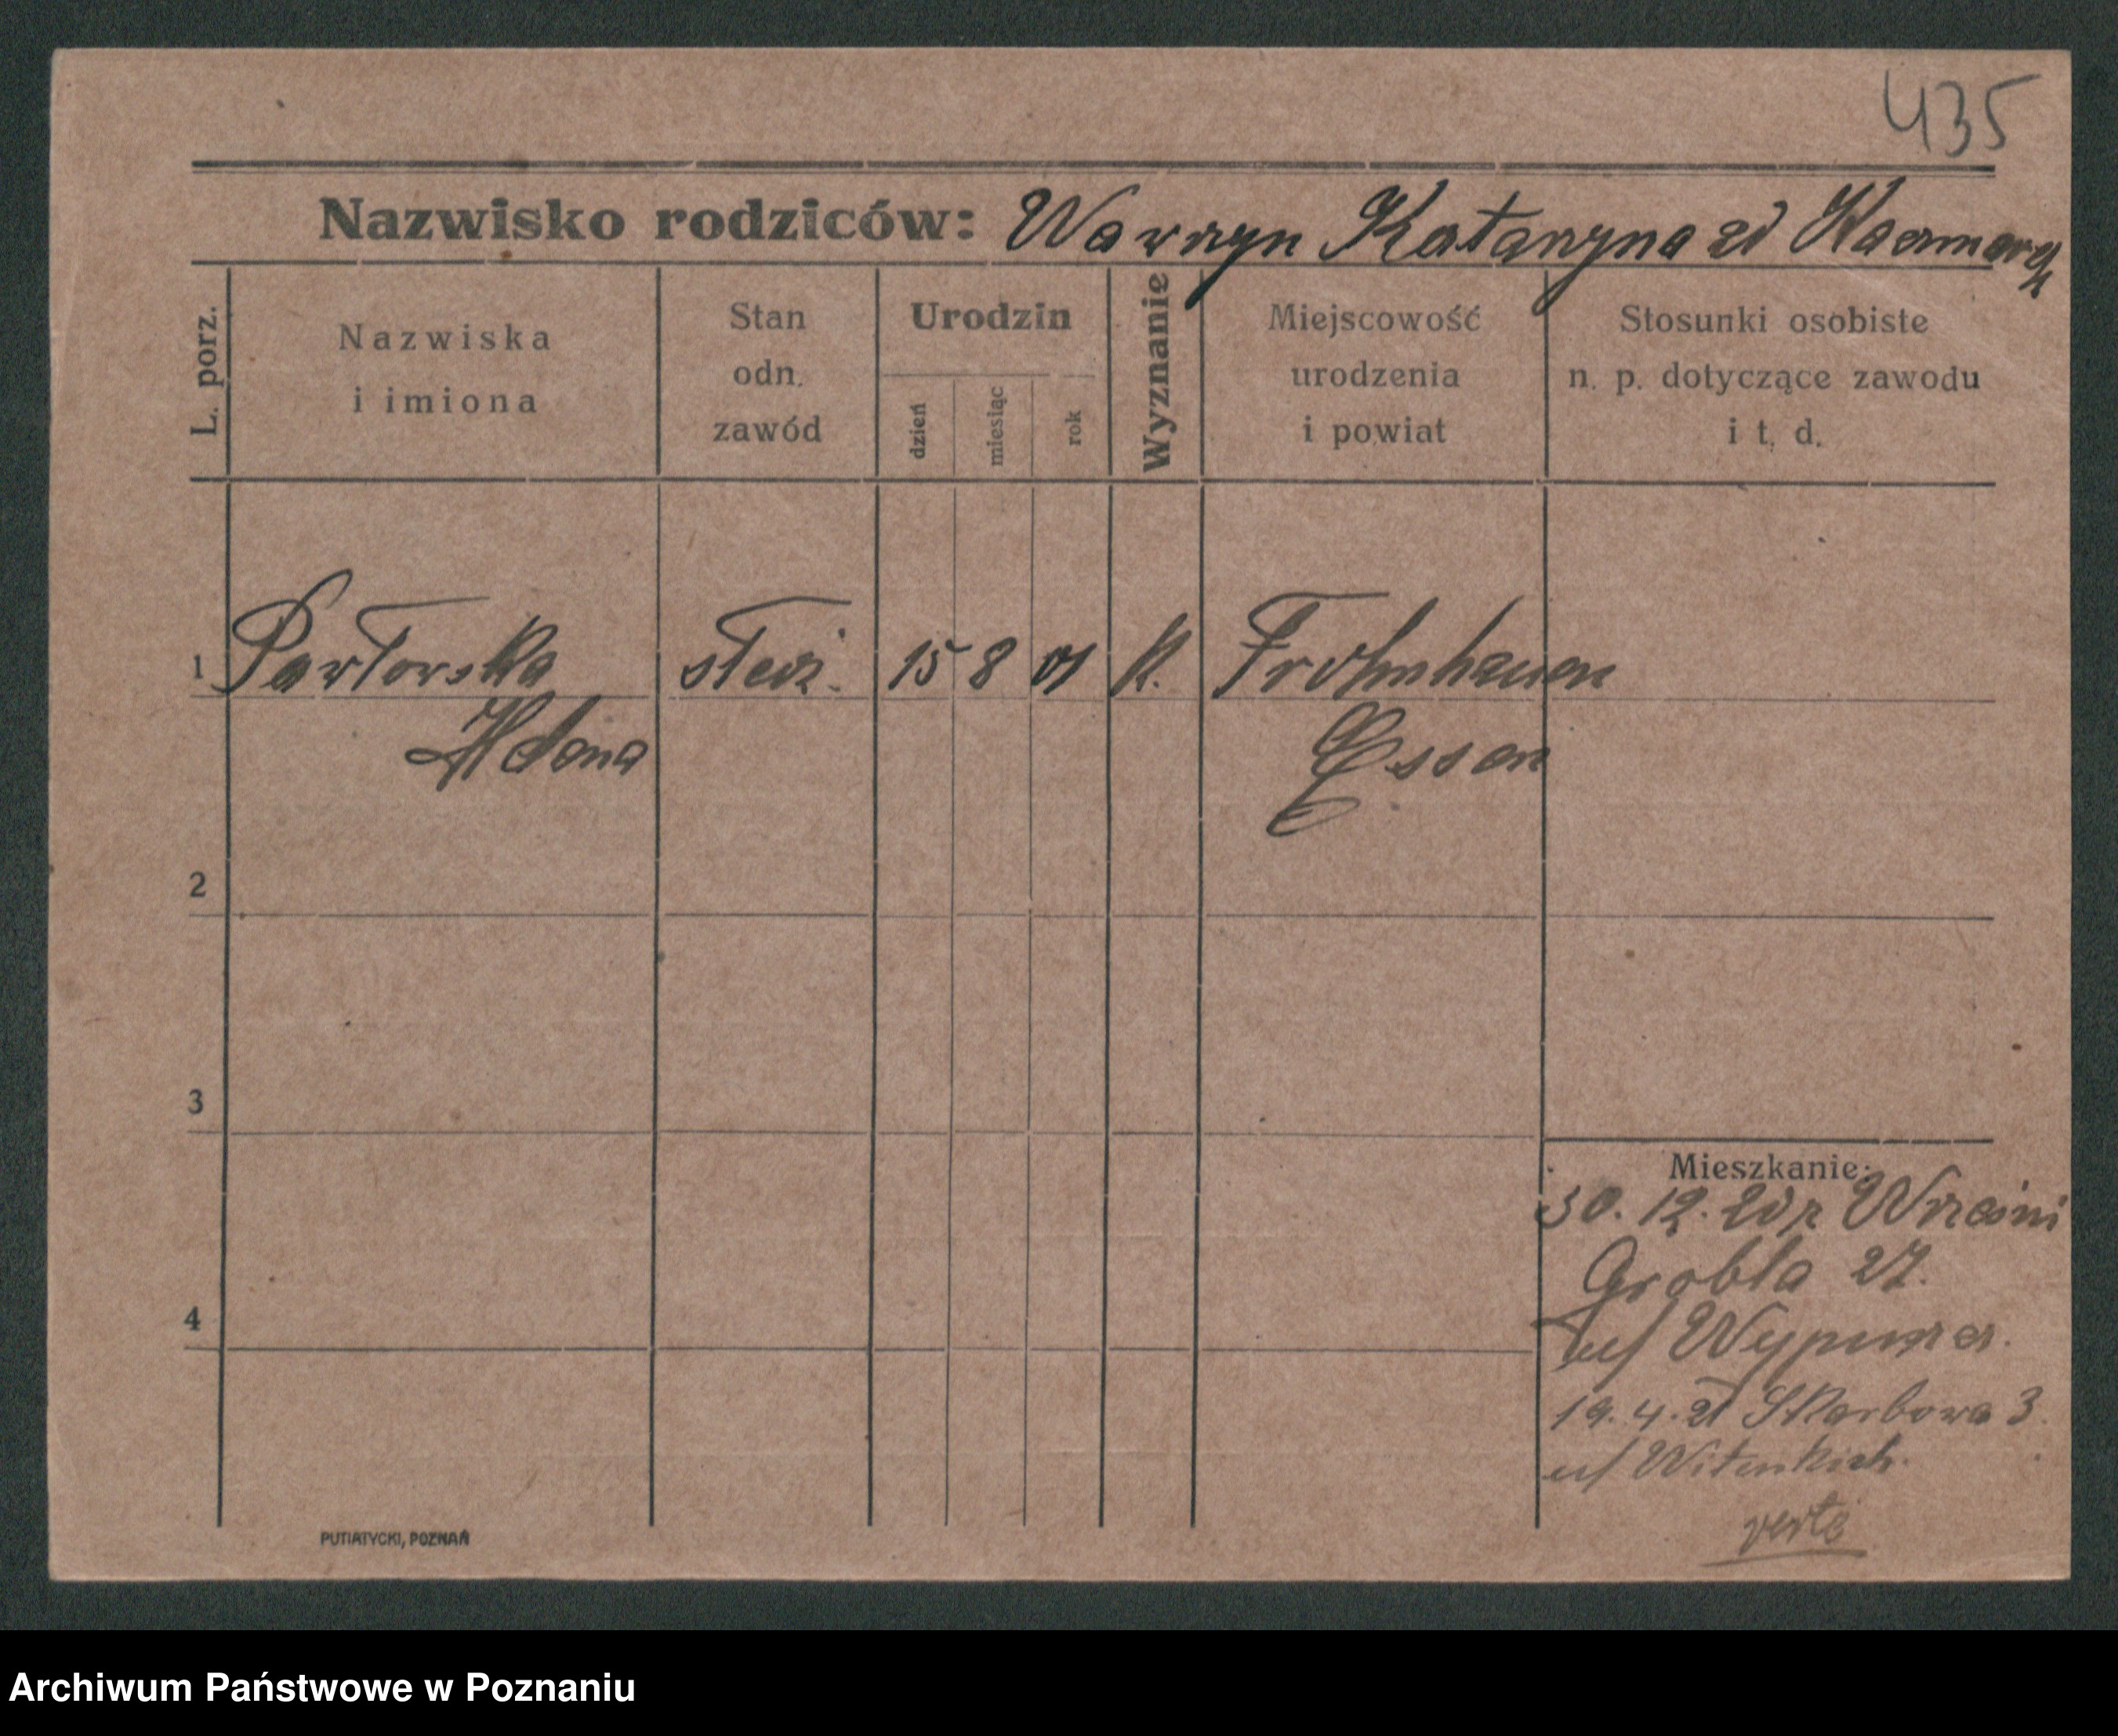 435
Nazwisko rodziców: Wawrzyn Katarzyna zd Kaczmarek
L. porz.
Nazwiska
i imiona
Stan
odn.
zawód
Urodzin
dzień
miesiąc
rok
Wyznanie
Miejscowość
urodzenia
i powiat
Stosunki osobiste
n. p. dotyczące zawodu
i t. d.
1 Pawłowska 15 8 01 k. Frohnhausen
Helena Essen
2
3
4
Mieszkanie:
30. 12. 20 z Wrześni
Grobla 27.
u/
19. 4. 21 Skarbowa 3.
u/
verte
PUTIATYCKI, POZNAŃ
Archiwum Państwowe w Poznaniu